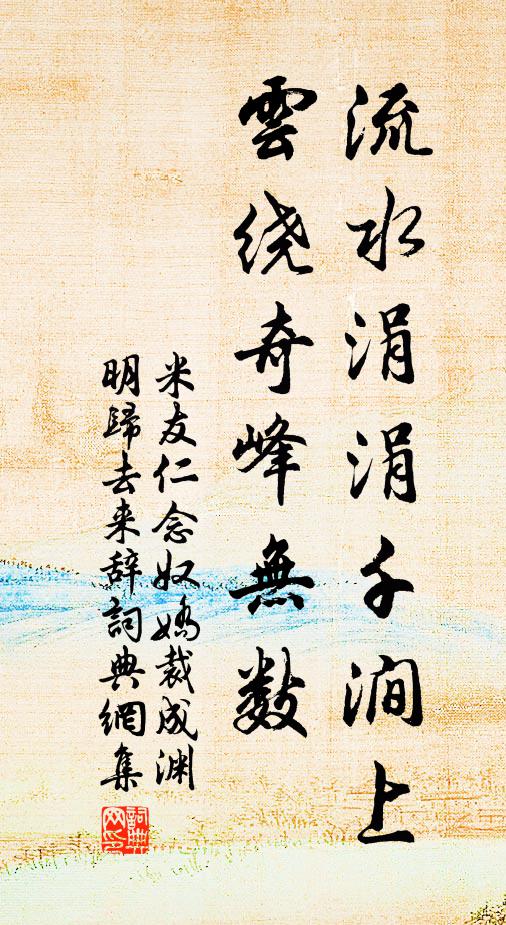 流水涓涓千涧上
雲绕奇峰無数
米友仁念奴娇裁成渊
明歸去来辞詞典網集
詞典网印